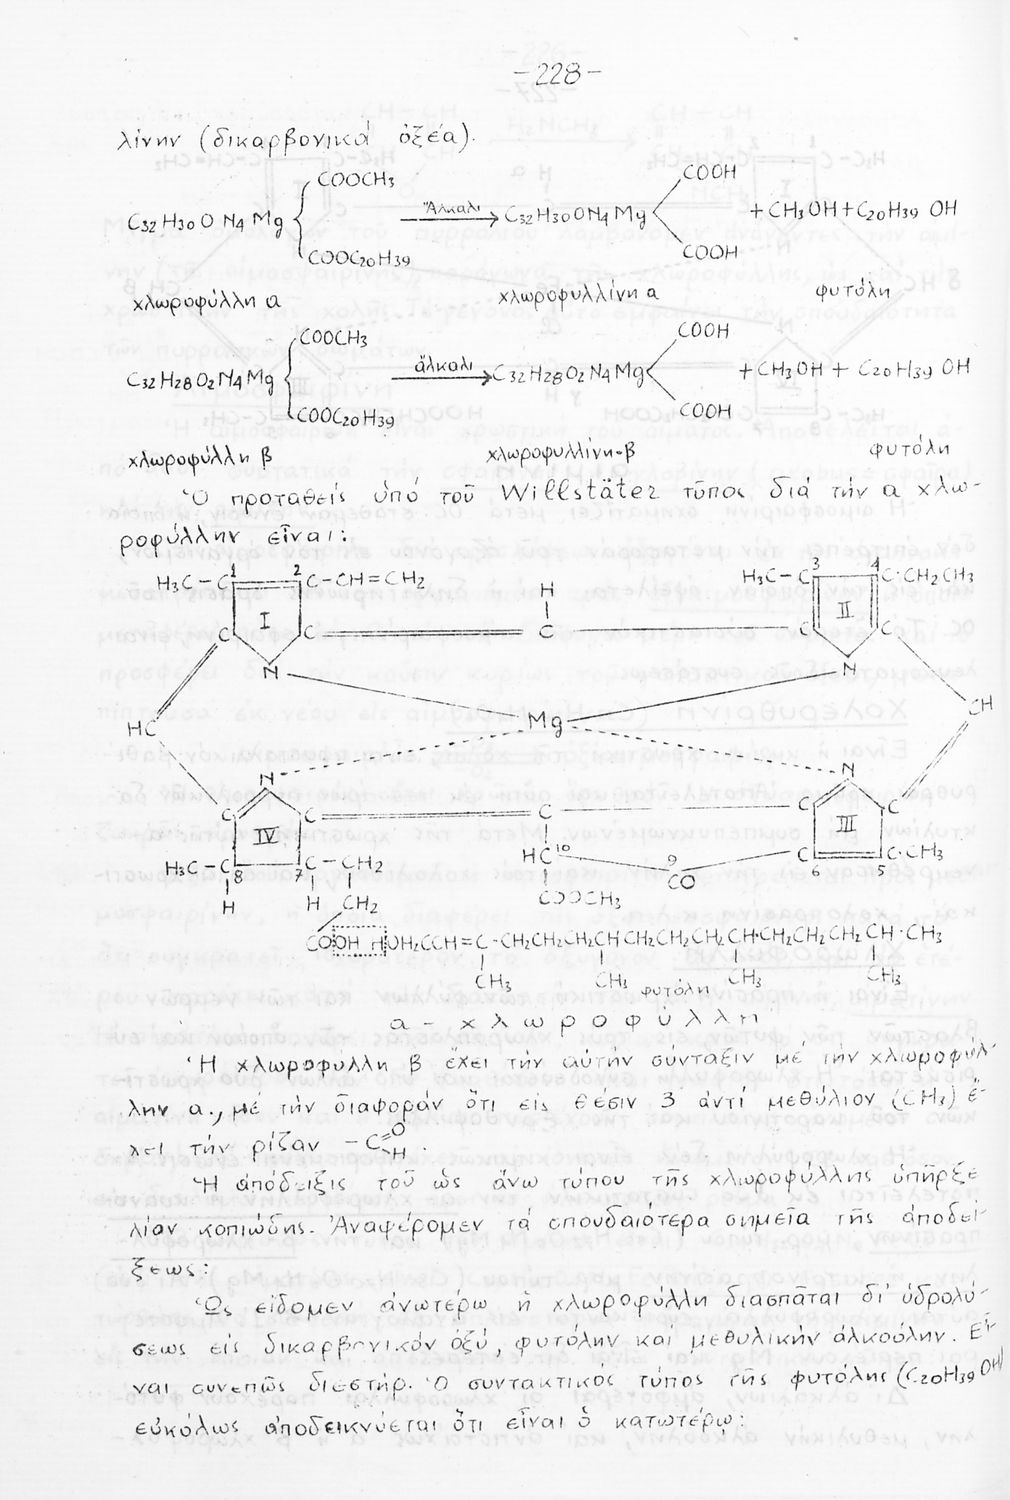 -228-
λίνην (δικαρβονικά ὀξέα).
COOCH3 COOH
C32H30ON4Mg Ἄλκαλι C32H30ON4Mg +CH3OH+C20H39OH
COOC20H39 COOH
χλωροφύλλη α χλωροφυλλίνη α φυτόλη
COOCH3 COOH
C32H28O2N4Mg ἄλκαλι C32H28O2N4Mg +CH3OH + C20H39OH
COOC20H39 COOH
χλωροφύλλη β χλωροφυλλίνη-β φυτόλη
Ὁ προταθείς ὑπό τοῦ Willstäter τῦπος διά τήν α χλω-
ροφύλλην εἶναι:
1 2 3 4
H3C-C C-CH=CH2 H H3C-C C·CH2CH3
I II
C C C C C
N N
HC Mg CH
N N
C C C C C
IV III
H3C-C C-CH2 HC10 9 C C·CH3
8 7 CO 6 5
H H CH2 COOCH3
COOH HOH2CCH=C-CH2CH2CH2CHCH2CH2CH2CH·CH2CH2CH2CH·CH3
CH3 CH3 φυτόλη CH3 CH3
α-χλωροφύλλη
Ἡ χλωροφύλλη β ἔχει τήν αὐτήν συνταξιν μέ τήν χλωροφύλ-
λην α., μέ τήν διαφοράν ὅτι εἰς θέσιν 3 ἀντί μεθύλιον (CH3) ἔ-
χει τήν ρίζαν -C=O H .
Ἡ ἀπόδειξις τοῦ ὡς ἄνω τύπου τῆς χλωροφύλλης ὑπῆρξε
λίαν κοπιώδης. Ἀναφέρομεν τά σπουδαιότερα σημεῖα τῆς ἀποδεί-
ξεως:
Ὡς εἴδομεν ἀνωτέρω ἡ χλωροφύλλη διασπᾶται δι' ὑδρολύ-
σεως εἰς δικαρβονικόν ὀξύ, φυτόλην και μεθυλικήν ἀλκοόλην. Εἶ-
ναι συνεπῶς διεστήρ. Ὁ συντακτικος τύπος τῆς φυτόλης (C20H39OH)
εὐκόλως ἀποδεικνύεται ὅτι εἶναι ὁ κατωτέρω: